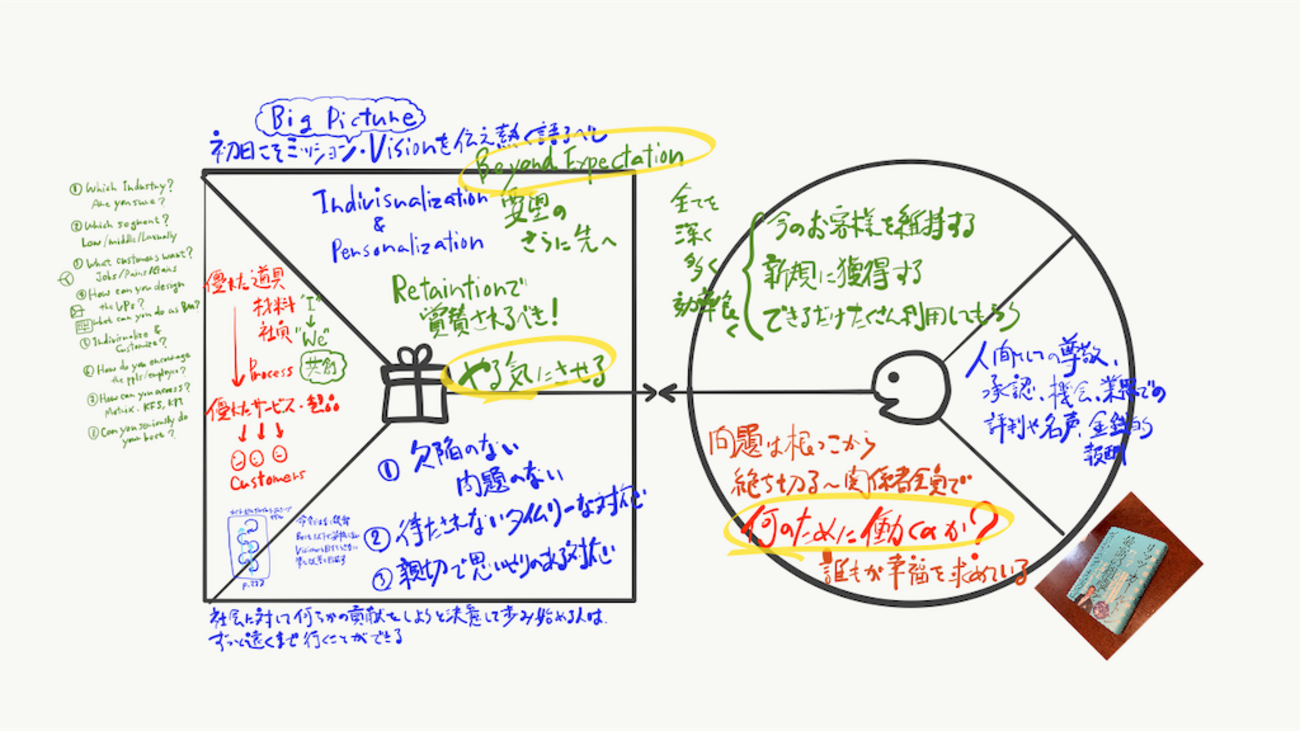 Big Picture
初日こそミッション・Visionを伝え熱く語るべし
Beyond Expectation
要望の
さらに先へ
Indivisualization
&
Personalization
Retaintionで
賞賛されるべき!
やる気にさせる
① Which Industry?
Are you sure?
② Which segment?
Low/middle/Luxually
③ What customers want?
Jobs/Pains/Gains
④ How can you design
the VPs?
What can you do as Bm?
⑤ Indivirualize &
Customize?
⑥ How do you encourage
the ppls/employee?
⑦ How can you assess?
Matrix. KFS, KPI
Can you seriously do
your best?
優れた道具
材料
社員
"I"
"We"
共創
Process
優れたサービス・製品
Customers
P.222
① 欠陥のない
問題のない
② 待たされないタイムリーな対応
③ 親切で思いやりのある対応
社会に対して何らかの貢献をしようと決意して歩み始める人は、
ずっと遠くまで行くことができる
全てを
深く
多く
効率良く
今のお客様を維持する
新規に獲得する
できるだけたくさん利用してもらう
人間としての尊敬、
承認、機会、業界での
評判や名声、金銭的
報酬
問題は根っこから
絶ち切る〜関係者全員で
何のために働くのか?
誰もが幸福を求めている